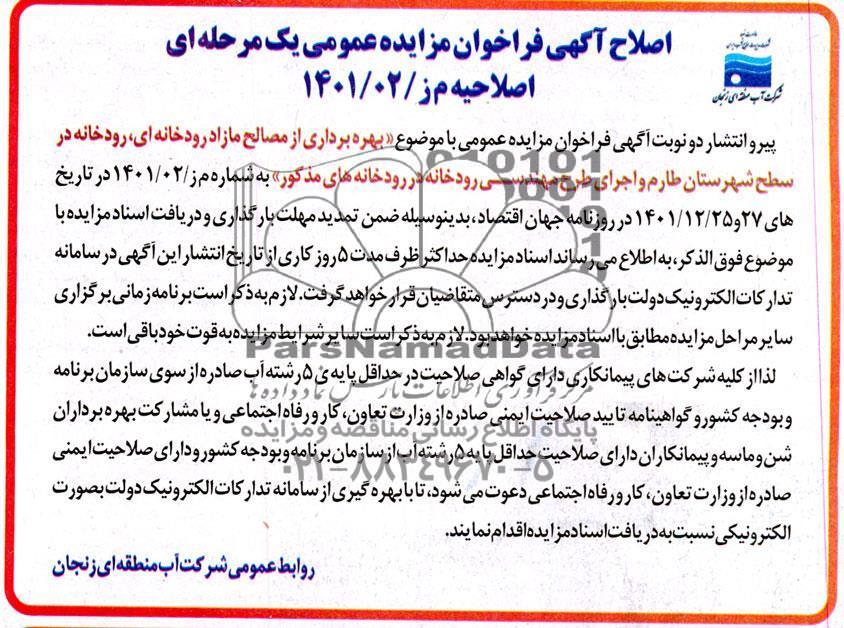 اصلاح آگهی فراخوان مزایده عمومی یک مرحله ای
اصلاحیه م ز /۱۴۰۱/۰۲
شرکت آب منطقه ای زنجان
پیرو انتشار دو نوبت آگهی فراخوان مزایده عمومی با موضوع «بهره برداری از مصالح مازاد رودخانه ای، رودخانه در
سطح شهرستان طارم و اجرای طرح مهندسی رودخانه در رودخانه های مذکور» به شماره م ز/۱۴۰۱/۰۲ در تاریخ
های ۲۷و۱۴۰۱/۱۲/۲۵ در روزنامه جهان اقتصاد، بدینوسیله ضمن تمدید مهلت بارگذاری و دریافت اسناد مزایده با
موضوع فوق الذکر، به اطلاع می رساند اسناد مزایده حداکثر ظرف مدت ۵ روز کاری از تاریخ انتشار این آگهی در سامانه
تدارکات الکترونیک دولت بارگذاری و در دسترس متقاضیان قرار خواهد گرفت. لازم به ذکر است برنامه زمانی برگزاری
سایر مراحل مزایده مطابق با اسناد مزایده خواهد بود. لازم به ذکر است سایر شرایط مزایده به قوت خود باقی است.
لذا از کلیه شرکت های پیمانکاری دارای گواهی صلاحیت در حداقل پایه ی ۵ رشته آب صادره از سوی سازمان برنامه
و بودجه کشور و گواهینامه تایید صلاحیت ایمنی صادره از وزارت تعاون، کار و رفاه اجتماعی و یا مشارکت بهره برداران
شن و ماسه و پیمانکاران دارای صلاحیت حداقل پایه ۵ رشته آب از سازمان برنامه و بودجه کشور و دارای صلاحیت ایمنی
صادره از وزارت تعاون، کار و رفاه اجتماعی دعوت می شود، تا با بهره گیری از سامانه تدارکات الکترونیک دولت بصورت
الکترونیکی نسبت به دریافت اسناد مزایده اقدام نمایند.
روابط عمومی شرکت آب منطقه ای زنجان
ParsNamadData
مرکز فرآوری اطلاعات پارس نماد داده ها
پایگاه اطلاع رسانی مناقصه و مزایده
۰۲۱-۸۸۳۴۹۶۷۰-۵